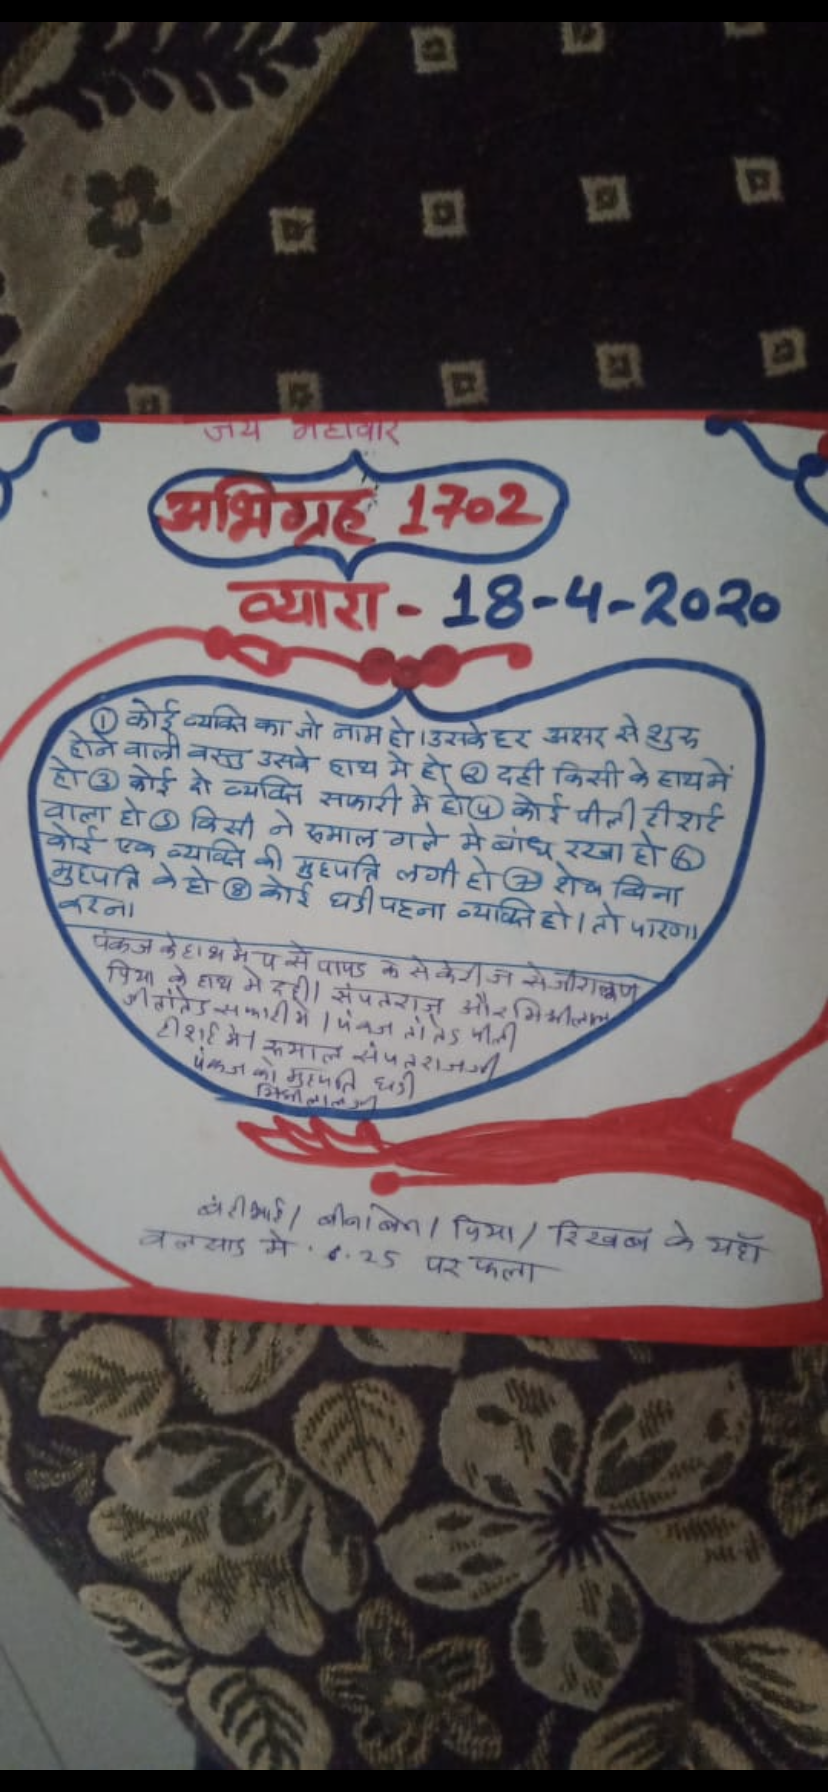 जय महावीर
अभिग्रह 1702
व्यारा - 18-4-2020
① कोई व्यक्ति का जो नाम हो। उसके हर अक्षर से शुरू
होने वाली वस्तु उसके हाथ मे हो ② दही किसी के हाथ में
हो ③ कोई दो व्यक्ति सफारी मे हो ④ कोई पीली टी शर्ट
वाला हो ⑤ किसी ने रुमाल गले मे बांध रखा हो ⑥
कोई एक व्यक्ति की मुहपत्ति लगी हो ⑦ शेष बिना
मुहपत्ति के हो ⑧ कोई घडी पहना व्यक्ति हो। तो पारणा
करना
पंकज के हाथ मे प से पापड क से केरी ज से जीरालूण
प्रिया के हाथ मे दही। संपतराज और मिश्रीलाल
जी तांतेड सफारी मे। पंकज तांतेड पीली
टी शर्ट मे। रुमाल संपतराजजी
पंकज को मुहपत्ति घडी
मिश्रीलालजी
बंटीभाई / बीनाबेन / प्रिया / रिखब के यहाँ
वलसाड मे .25 पर फला